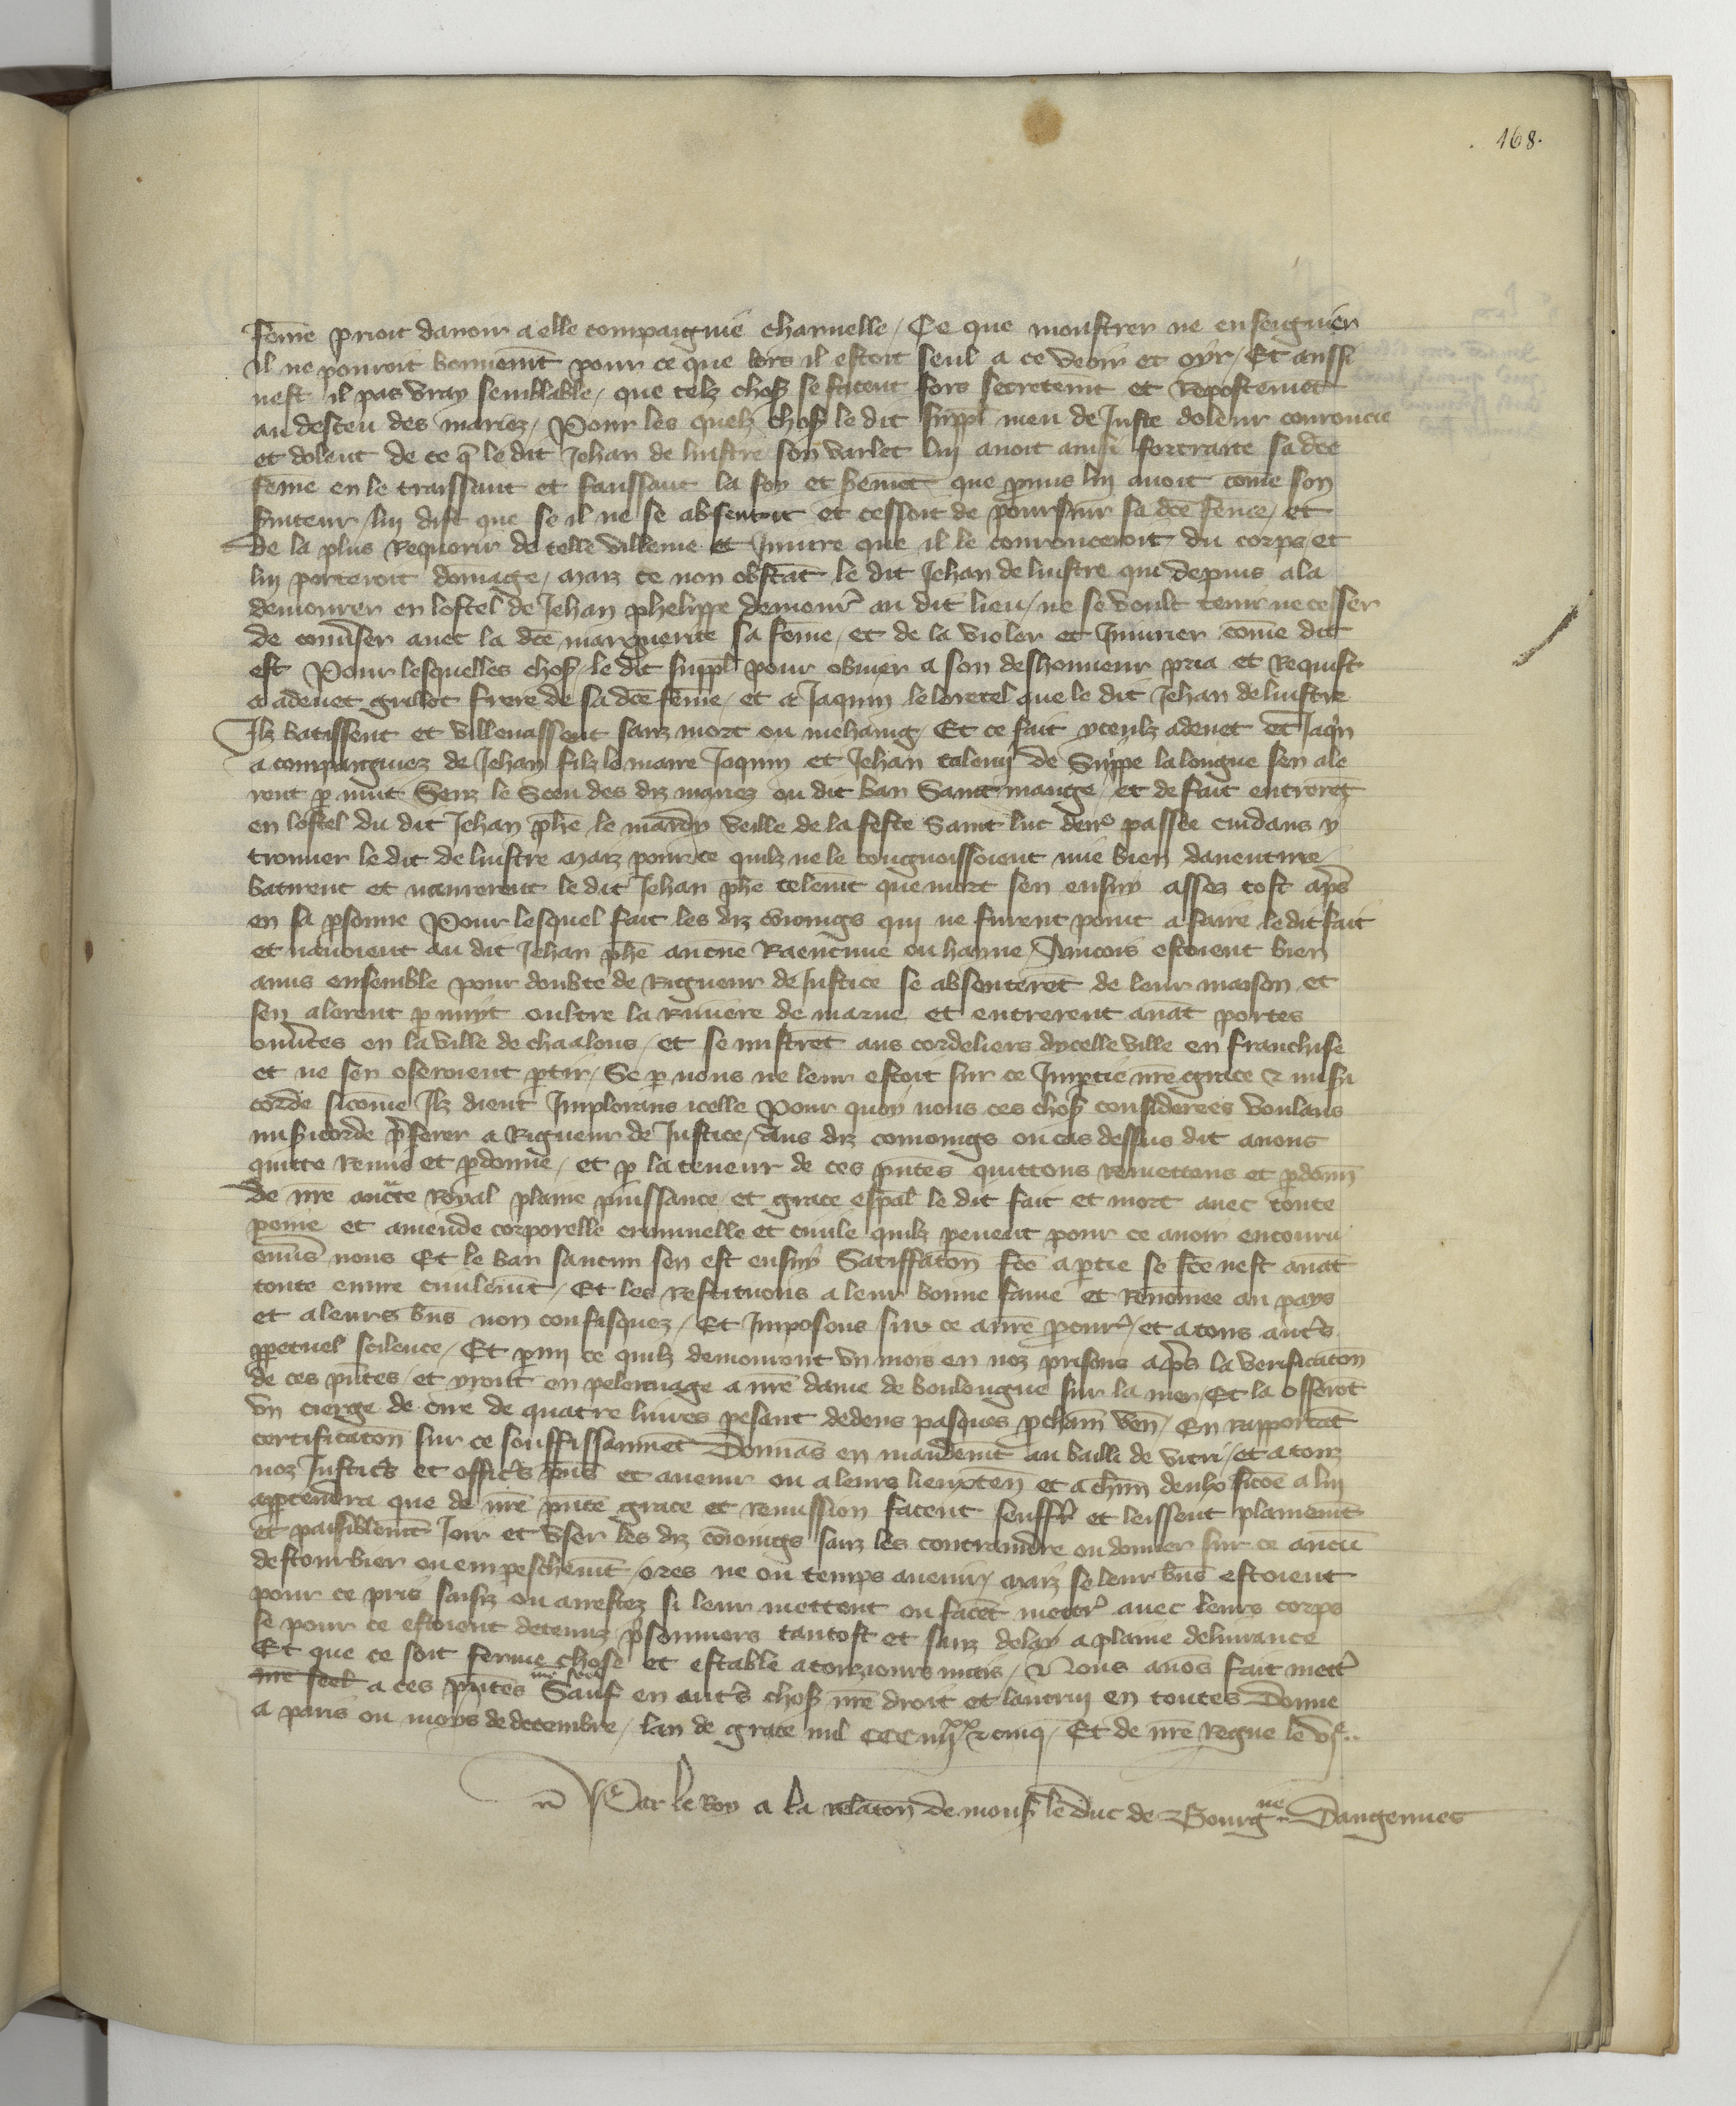 168.
feme prioit davoir a elle compaignie charnelle / Ce que monstrer ne enseignier
il ne pouroit bonnemt pour ce que lors il estoit seul a ce veoir et oyr / Et aussi
nest il pas vray semblable / que telz chos se facent fors secretemt et Repostemet
au desceu des mariez / Pour les quelz chos le dit suppl meu de Juste doleur couroucie
et dolent de ce q le dit Jehan de luistre son varlet luy avoit ainsi fortraite sa dce
feme en le traissant et faussant la foy et sermet que pmis luy avoit come son
suiteur / luy dist que se il ne se absentoit et cessoit de poursuir sa dce feme / et
de la plus Requerir de telle villenie et Injure que il le courouceroit du corps et
luy porteroit domage / maiz ce non obstat le dit Jehan de luistre qui depuis ala
demourer en lostel de Jehan phelippe demour au dit lieu / ne se voult tenir ne cesser
de converser avec la dce marguerite sa feme / et de la violer et Injurier come dit
est Pour lesquelles chos le dit suppl pour obvier a son deshonneur pria et Requist
a adenet grillot frere de sa dce feme / et a Jaquin le loretel que le dit Jehan de luistre
Ilz batissent et villenassent sanz mort ou mehaing Et ce fait yceulx adenet et Jaqn
acompaigniez de Jehan filz le maire Jaquin et Jehan calemy de Suppe la longue sen ale
rent p nuit Senz le Sceu des diz mariez ou dit ban Saint mange / et de fait entreret
en lostel du dit Jehan phe le mardy veille de la feste Saint luc dere passee cuidans y
trouver le dit de luistre maiz pour ce quilz ne le congnoissoient mie bien daventure
batirent et navrerent le dit Jehan phe telemt que mort sen ensuy assez tost aps
en sa psonne Pour lesquel fait les diz conioings qui ne furent point a faire le dit fait
et navoient au dit Jehan phe aucune Raencune ou hayne / Aincois estoient bien
amis ensemble pour doubte de Rigueur de Justice se absenteret de leur maison et
sen alerent p nuyt oultre la Riviere de marne et entrerent avat portes
ouvtes en la ville de chaalons / et se mistret aus cordeliers dycelle ville en franchise
et ne sen oseroient ptir / Se p nous ne leur estoit sur ce Imptie nre grace & misi
corde sicome Ilz dient Implorans icelle Pour quoy nous ces chos considerees voulans
misicorde pferer a Rigueur de Justice / aus diz conioings ou cas dessus dit avons
quitte Remis et pdonne / et p la teneur de ces pntes quittons Remettons et pdonn
de nre aucte Royal plaine puissance et grace espal le dit fait et mort avec toute
peine et amende corporelle criminelle et civile quilz pevent pour ce avoir encouru
envs nous Et le ban saucun sen est ensuy Satiffaton fce a ptie se fce nest avat
toute euvre civilemt / Et les Restituons a leur bonne fame et Renomee au pays
et a leurs bns non confisquez / Et Imposons sur ce a nre pcur / et a tous auts
ppetuel scilence / Et pmy ce quilz demourront un mois en noz prisons aps la verificaton
de ces pntes et yront en pelerinage a nre dame de boulongne sur la mer / Et la offrerot
un cierge de cire de quatre livres pesant dedens pasques pchain ven / En Rapportat
certificaton sur ce souffissammet Donnas en mandemt au bailli de vitri / et a touz
noz Justics et offics pns et avenir ou a leurs lieuxten et a chun deulx sicoe a luy
apptendra que de nre pnte grace et Remission facent seuffr et leissent plainemt
et paisiblemt Joir et user les diz conioings sanz les contraindre ou donner sur ce aucu
destourbier ou empeschemt / ores ne ou temps avenir / maiz se leur bns estoient
pour ce pris saisiz ou arrestez si leur mettent ou facet mettr avec leurs corps
se pour ce estoient detenuz psonniers tantost et sanz delay a plaine delivrance
Et que ce soit ferme chose et estable a touziours mais / Nous avos fait mettr
nre seel a ces pntes nre seel Sauf en auts chos nre droit et lautruy en toutes Donne
a paris ou moys de decembre / lan de grace mil CCC iiijxx & cinq / Et de nre Regne le vje ..
Par le Roy a la relaton de mons le duc de Bourgne Dangennes